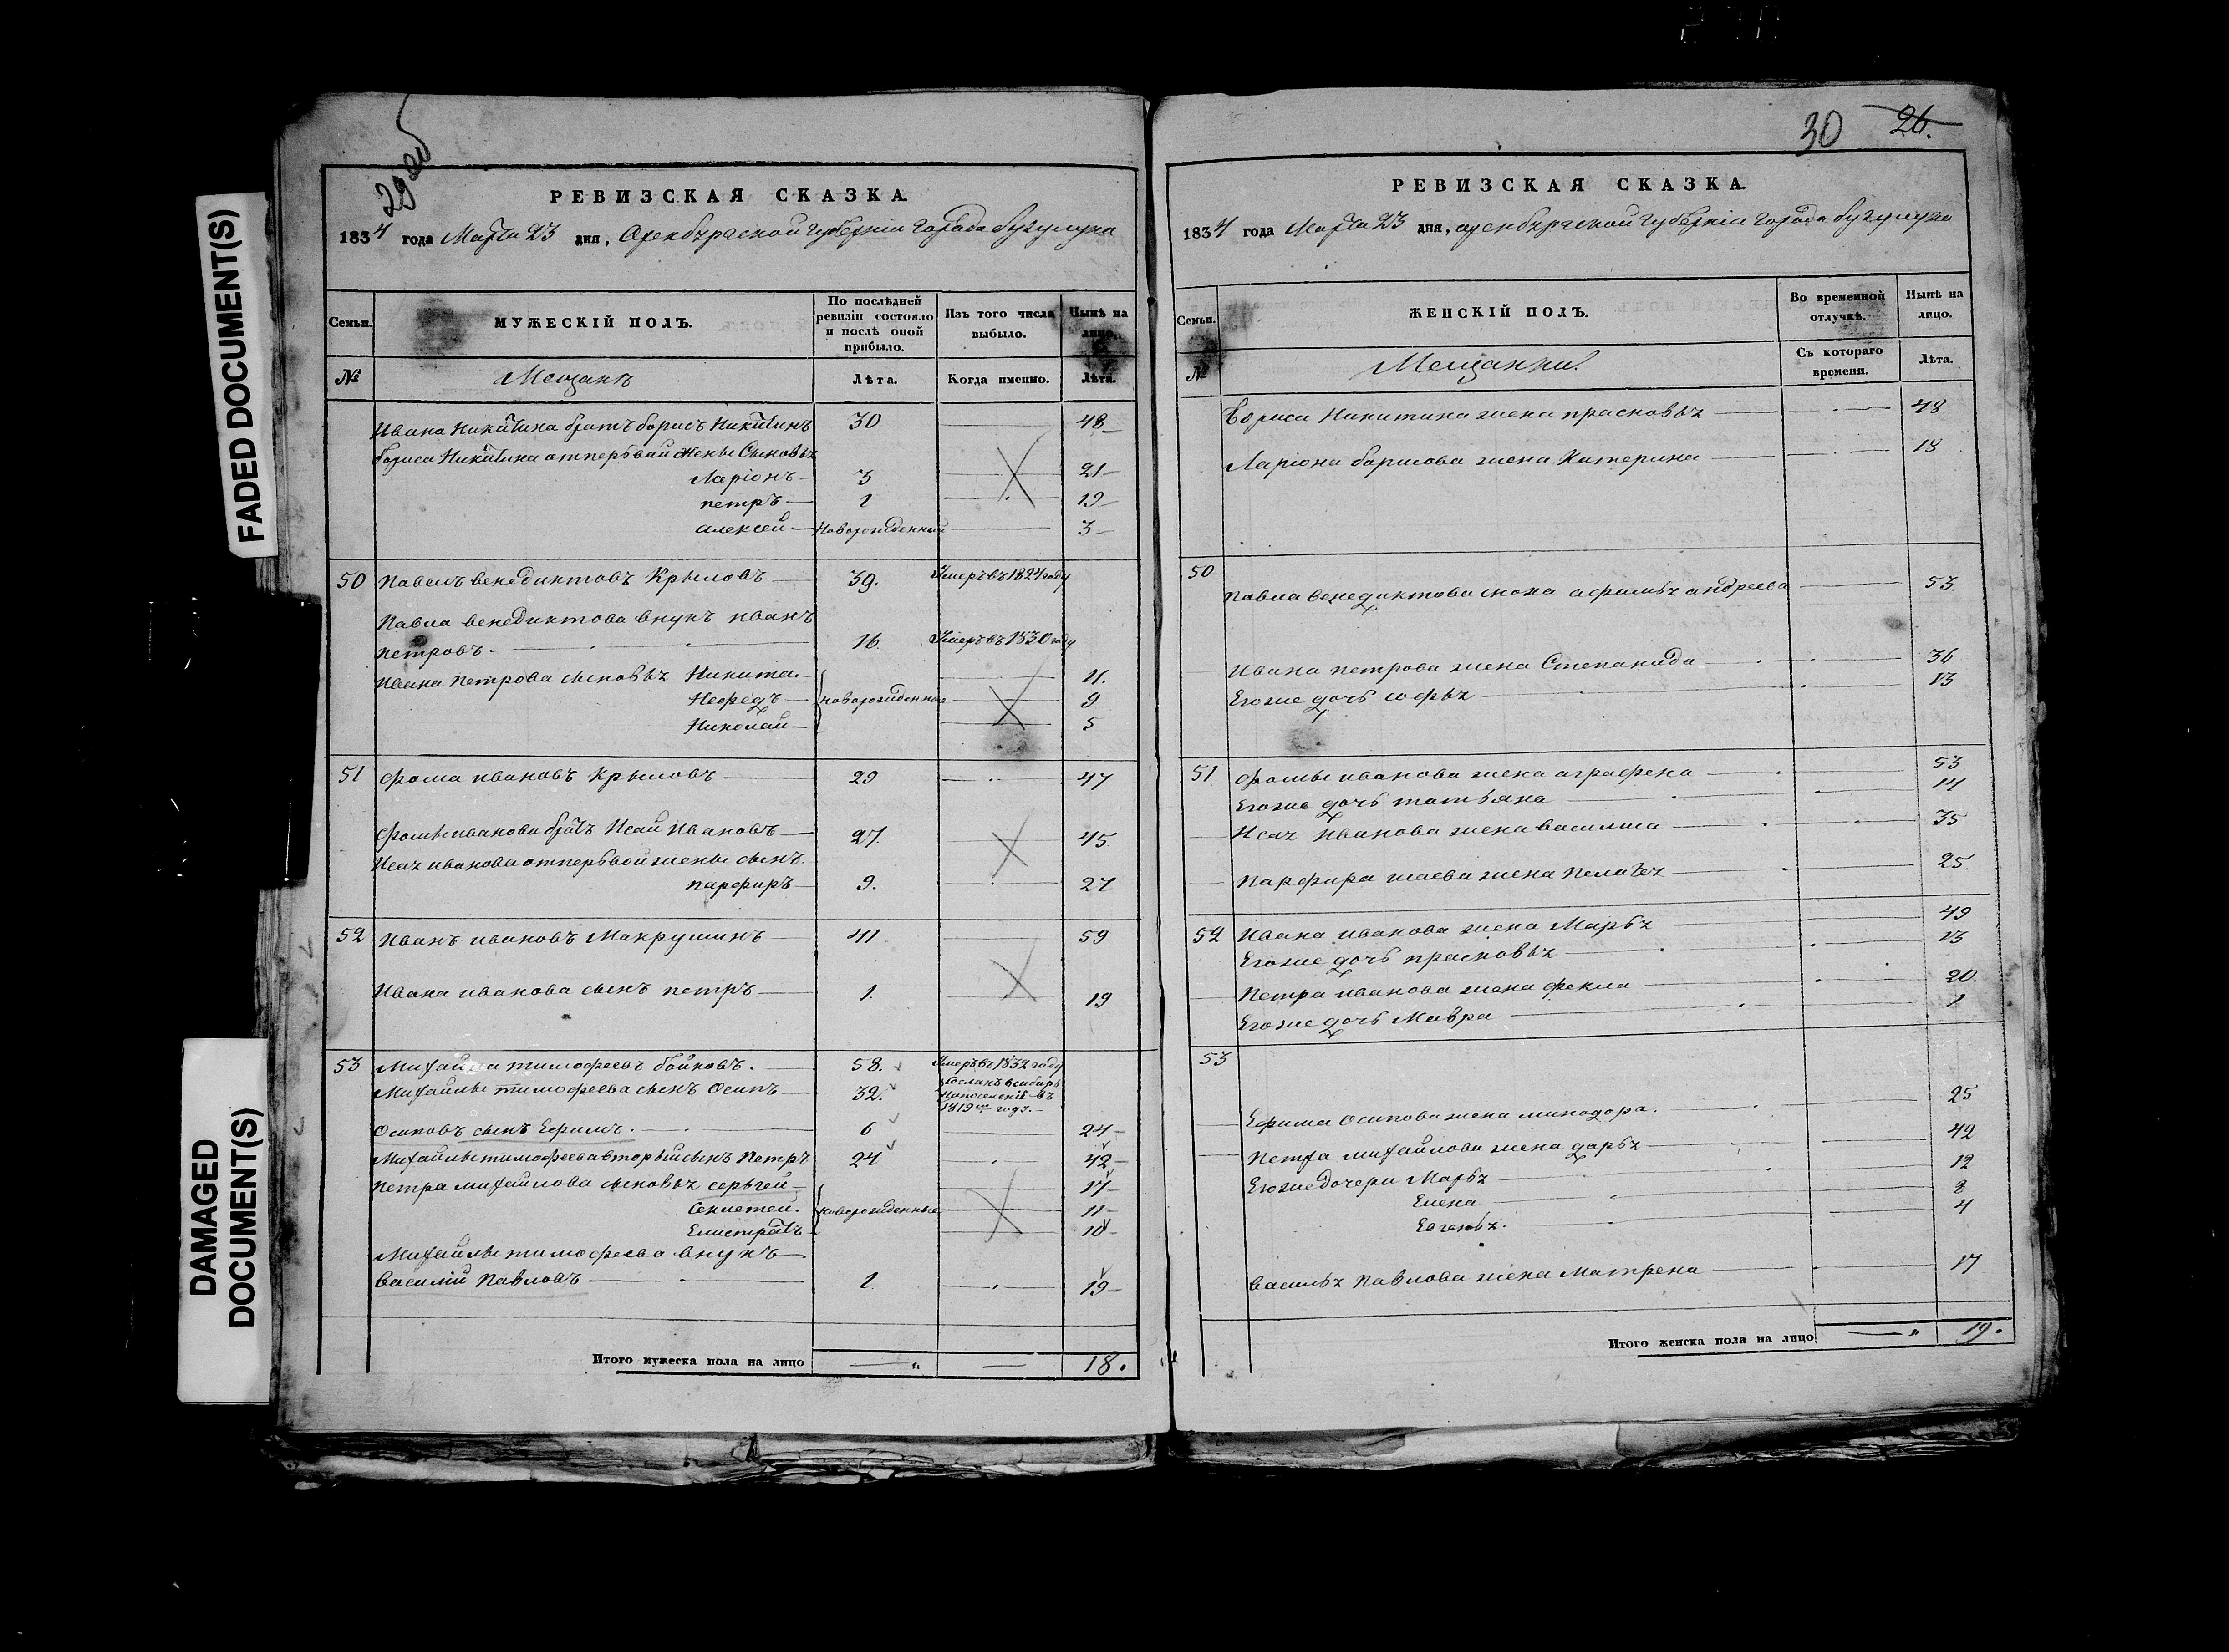 FADED DOCUMENT(S)
DAMAGED
DOCUMENT(S)
29 об
РЕВИЗСКАЯ СКАЗКА.
1834 года Марта 23 дня, Оренбургской губернии города Бугульмы
Семьи.
МУЖЕСКІЙ ПОЛЪ.
По послѣдней
ревизіи состояло
и послѣ оной
прибыло.
Изъ того числа
выбыло.
Нынѣ на
лицо.
№
Мещанъ
Лѣта.
Когда именно.
Лѣта.
Ивана Никитина братъ борисъ Никитинъ 30 48
бориса Никитина отпервой жены Сыновья
Ларіонъ 3 21
петръ 1 19
алексей Новорожденный 3
50 Павелъ венедиктовъ Крыловъ 39. Умеръ въ 1824 году
Павла венедиктова внукъ иванъ
петровъ. 16. Умеръ въ 1830 году
Ивана петрова сыновья Никита 11.
Нефедъ новорожденные 9
Николай 5
51 фома ивановъ Крыловъ 29 47
фомы иванова братъ Исай Ивановъ 27. 45
Исая иванова отпервой жены сынъ
парфиръ 9. 27
52 Иванъ ивановъ Макрушинъ 41 59
Ивана иванова сынъ петръ 1. 19
53 Михайла тимофеевъ бойковъ. 58. Умеръ въ 1832 году
Михайлы тимофеева сынъ Осипъ 32. Сосланъ в сибирь
Напоселеніе въ
1819м году.
Осиповъ сынъ Ефимъ. 6 24
Михайлы тимофеева вторый сынъ Петръ 24 42
Петра михайлова сыновья сергей 17
Секлетей. новорожденные 11
Елистратъ 10
Михайлы тимофеева внукъ
василій Павловъ 1. 19
Итого мужеска пола на лицо 18.
30 26.
РЕВИЗСКАЯ СКАЗКА.
1834 года Марта 23 дня, оренбургской губерніи города бугульмы
Семьи.
ЖЕНСКІЙ ПОЛЪ.
Во временной
отлучкѣ.
Нынѣ на
лицо.
№
Мещанки
Съ котораго
времени.
Лѣта.
Бориса Никитина жена прасковья 48
Ларіона борисова жена Катерина 18
50
Павла венедиктова сноха афимья андреева 53.
Ивана петрова жена Степанида 36
Егоже дочь софья 13
51 фомы иванова жена аграфена 53
Егоже дочь татьяна 14
Исая Иванова жена василиса 35
Парфира исаева жена Пелагея 25.
52 Ивана иванова жена Марья 49
Егоже дочь прасковья 13
Петра иванова жена фекла 20.
Егоже дочь Мавра 1
53
Ефима осипова жена минодора. 25
Петра михайлова жена дарья 42
Егоже дочери Марья 12
Елена 8
Евгенья. 4
василья Павлова жена Матрена 17
Итого женска пола на лицо 19.